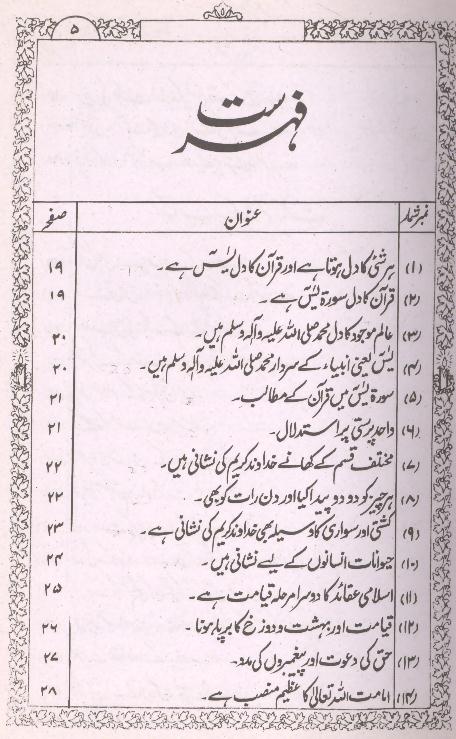 ۵
فہرست
نمبر شمار عنوان صفحہ
(۱) ہر شئی کا دل ہوتا ہے اور قرآن کا دل یٰسٓ ہے۔ ۱۹
(۲) قرآن کا دل سورۃ یٰسٓ ہے۔ ۱۹
(۳) عالم موجود کا دل محمد صلی اللہ علیہ وآلہ وسلم ہیں۔ ۲۰
(۴) یٰسٓ یعنی انبیاء کے سردار محمد صلی اللہ علیہ وآلہ وسلم ہیں۔ ۲۰
(۵) سورۃ یٰسٓ میں قرآن کے مطالب۔ ۲۱
(۶) واحد پرستی پر استدلال۔ ۲۱
(۷) مختلف قسم کے کھانے خداوند کریم کی نشانی ہیں۔ ۲۲
(۸) ہر چیز کو دو دو پیدا کیا اور دن رات کو بھی۔ ۲۲
(۹) کشتی اور سواری کا وسیلہ بھی خداوند کریم کی نشانی ہے۔ ۲۳
(۱۰) حیوانات انسانوں کے لیے نشانی ہیں۔ ۲۴
(۱۱) اسلامی عقائد کا دوسرا مرحلہ قیامت ہے۔ ۲۵
(۱۲) قیامت اور بہشت و دوزخ کا برپا ہونا۔ ۲۶
(۱۳) حق کی دعوت اور پیغمبروں کی مدد۔ ۲۷
(۱۴) امامت اللہ تعالیٰ کا عظیم منصب ہے۔ ۲۸